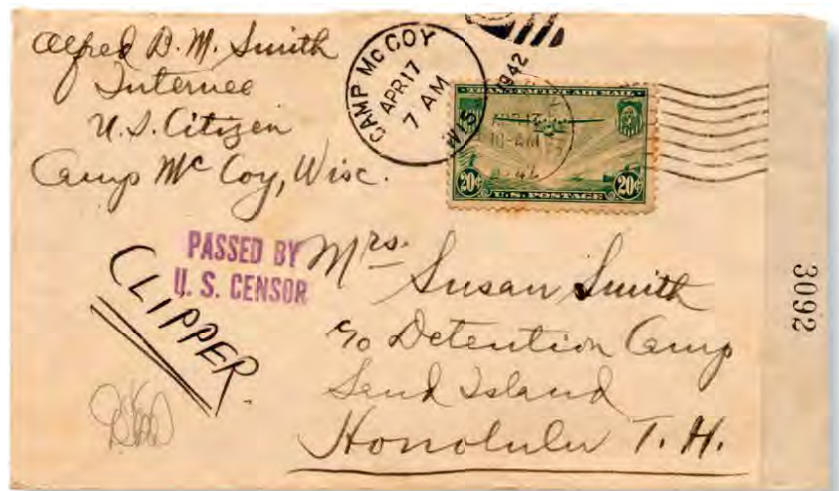 Alfred D. M. Smith
Internee
U.S. Citizen
Camp Mc Coy, Wisc.
CAMP McCOY
APR 17
7 AM
1942
WIS
TRANS-PACIFIC AIR MAIL
10-AM
42
20¢ 20¢
U.S. POSTAGE
PASSED BY
U. S. CENSOR
CLIPPER
Mrs. Susan Smith
c/o Detention Camp
Sand Island
Honolulu T. H.
3092